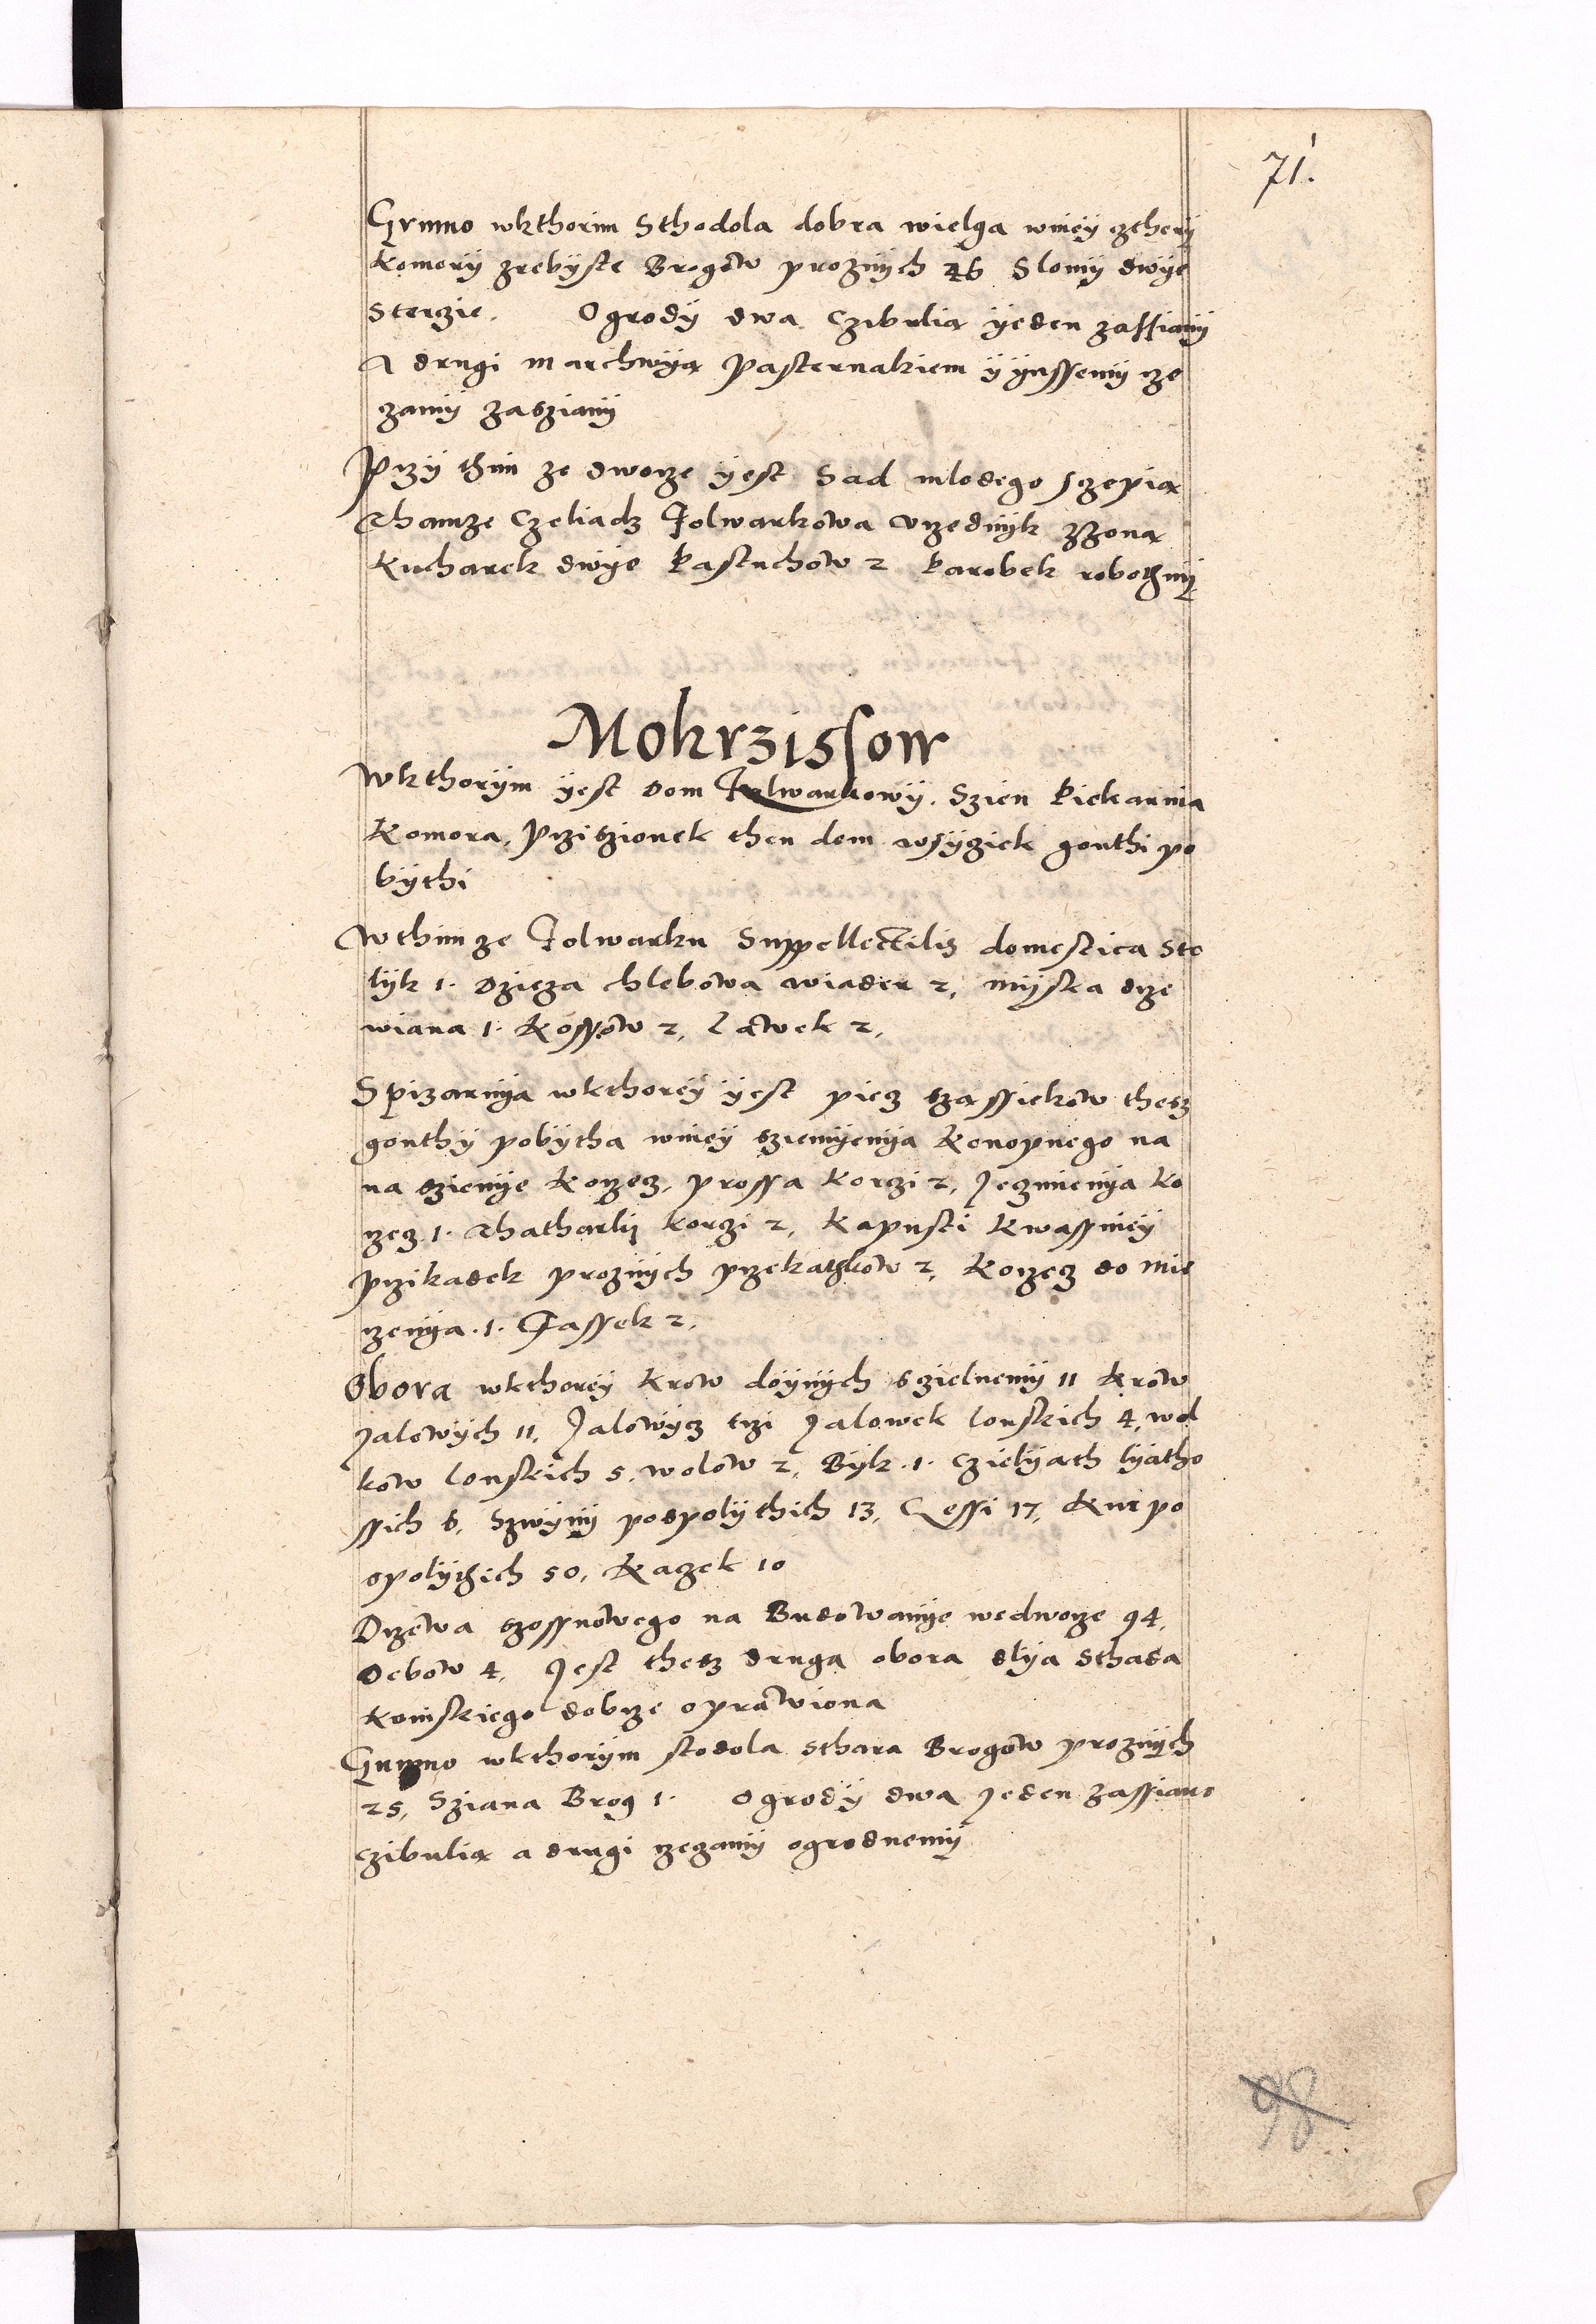 71.
Gvmno wkthorim Sthodola dobra wielga wniey czthery
komory zrebyste Brogow proznych 46 Slomy dwye
Sterczie. Ogrody dwa Czibulią yeden zassiany
A drugi marchwyą Pasternakiem y ynssemy rze
czamy zasziany
Przy thim ze dworze yest Sad mlodego sczepią
Thamze Czeliadz Folwarkowa Vrzednyk zzoną
Kucharek dwye Pastuchow 2 Parobek robothny
Mokrzissow
Wkthorym yest dom Folwarkowy. Szien Piekarnia
Komora, Prziszionek then dom wsyziek gonthi po
bythi
Wthimze Folwarku Suppellectilis domestica Sto
lyk 1. Dzieza chlebowa wiader 2, myska drze
wiana 1. Kossow 2, Lawek 2,
Spizarnya wkthorey yest piecz szassiekow thesz
gonthy pobytha wniey sziemyenya Konopnego na
na sziemye Korzecz, prossa korczi 2, Jeczmienya Ko
rzecz 1. Thatharky korczi 2, Kapusti Kwassney
przikadek proznych przekathkow 2, Korzecz do mie
rzenya .1. Fassek 2,
Obora wkthorey Krow doynych szielnemy 11 Krow
Jalowych 11, Jalowycz trzi Jalowek lonskich 4, wol
kow lonskich 5, wolow 2, Byk .1. Czielyath lyatho
ssich 6, Szwyny pospolythich 13, Gessi 17, Kur po
spolythich 50, Kaczek 10
Drzewa szossnowego na Budowanye wedworze 94,
Debow 4, Jest thesz druga obora dlya Sthada
Konskiego dobrze oprawiona
Gumno wkthorym stodola Sthara Brogow proznych
25, Sziana Brog 1. Ogrody dwa Jeden zassiano
czibulią a drugi rzeczamy ogrodnemy
98